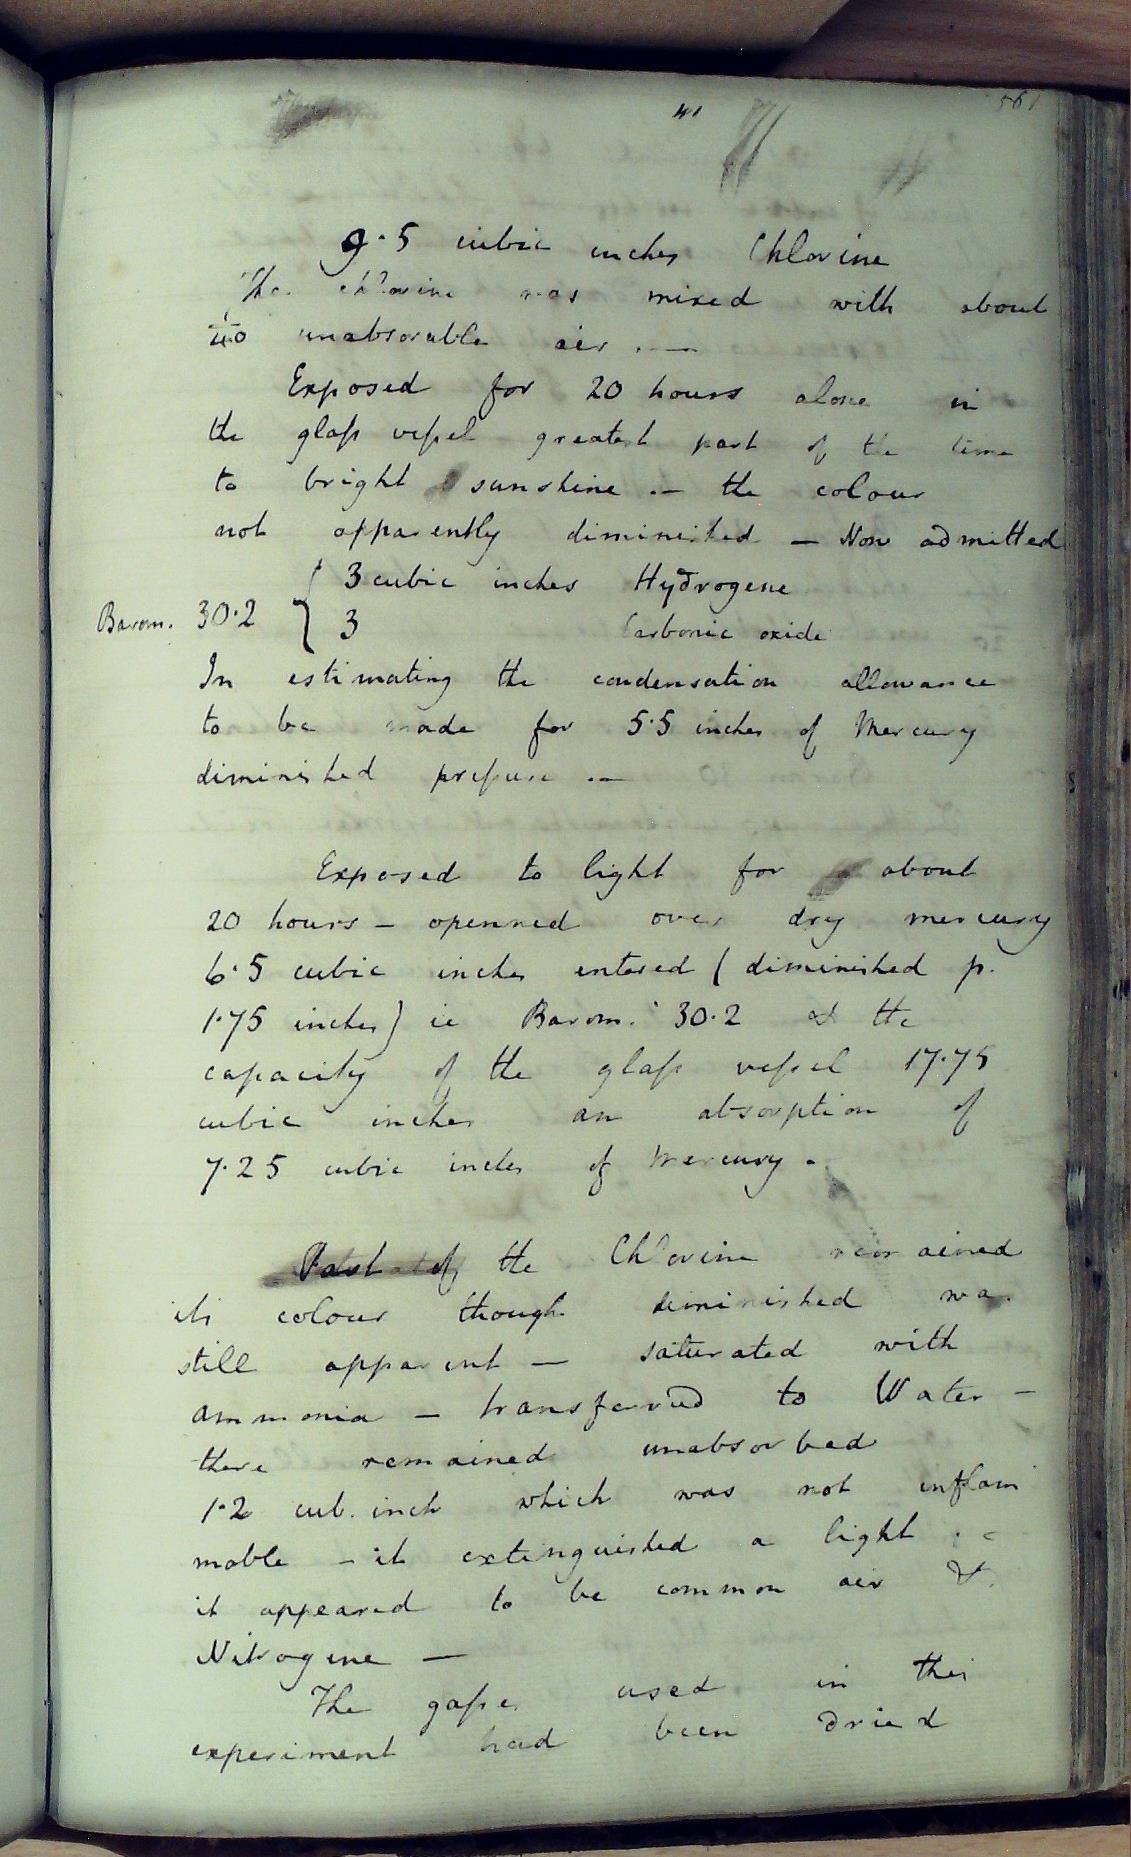 41
561
9.5 cubic inches Chlorine
The chlorine was mixed with about
1/40 unabsorable air . —
Exposed for 20 hours alone in
the glass vessel greatest part of the time
to bright sunshine . — the colour
not apparently diminished — Now admitted
3 cubic inches Hydrogene
Barom. 30.2 { 3 Carbonic oxide
In estimating the condensation allowance
to be made for 5.5 inches of Mercury
diminished pressure . —
Exposed to light for about
20 hours — openned over dry mercury
6.5 cubic inches entered ( diminished p.
1.75 inches ) ie Barom. 30.2 & the
capacity of the glass vessel 17.75
cubic inches an absorption of
7.25 cubic inches of Mercury .
Part of the Chlorine remained
its colour though diminished was
still apparent — saturated with
ammonia — transferred to Water —
there remained unabsorbed
1.2 cub. inch which was not inflam
mable — it extinguished a light . —
it appeared to be common air &
Nitrogene —
The gases used in this
experiment had been dried